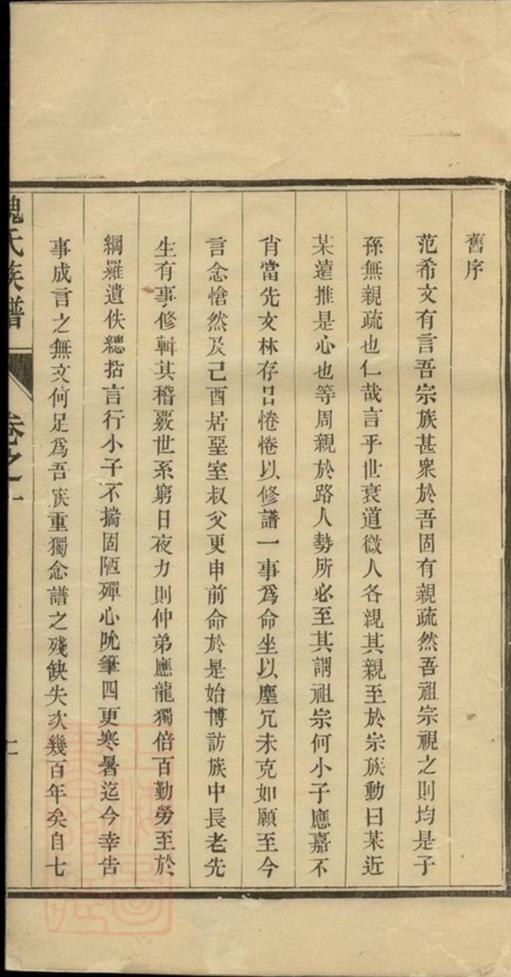 舊序
范希文有言吾宗族甚衆於吾固有親疏然吾祖宗視之則均是子
孫無親疏也仁哉言乎世衰道微人各親其親至於宗族動曰某近
某遠推是心也等周親於路人勢所必至其謂祖宗何小子應嘉不
肖當先文林存日惓惓以修譜一事爲命坐以塵冗未克如願至今
言念愴然及己酉居堊室叔父更申前命於是始博訪族中長老先
生有事修輯其稽覈世系窮日夜力則仲弟應龍獨倍百勤勞至於
網羅遺佚總括言行小子不揣固陋殫心吮筆四更寒暑迄今幸告
事成言之無文何足爲吾族重獨念譜之殘缺失次幾百年矣自七
魏氏族譜
卷之一